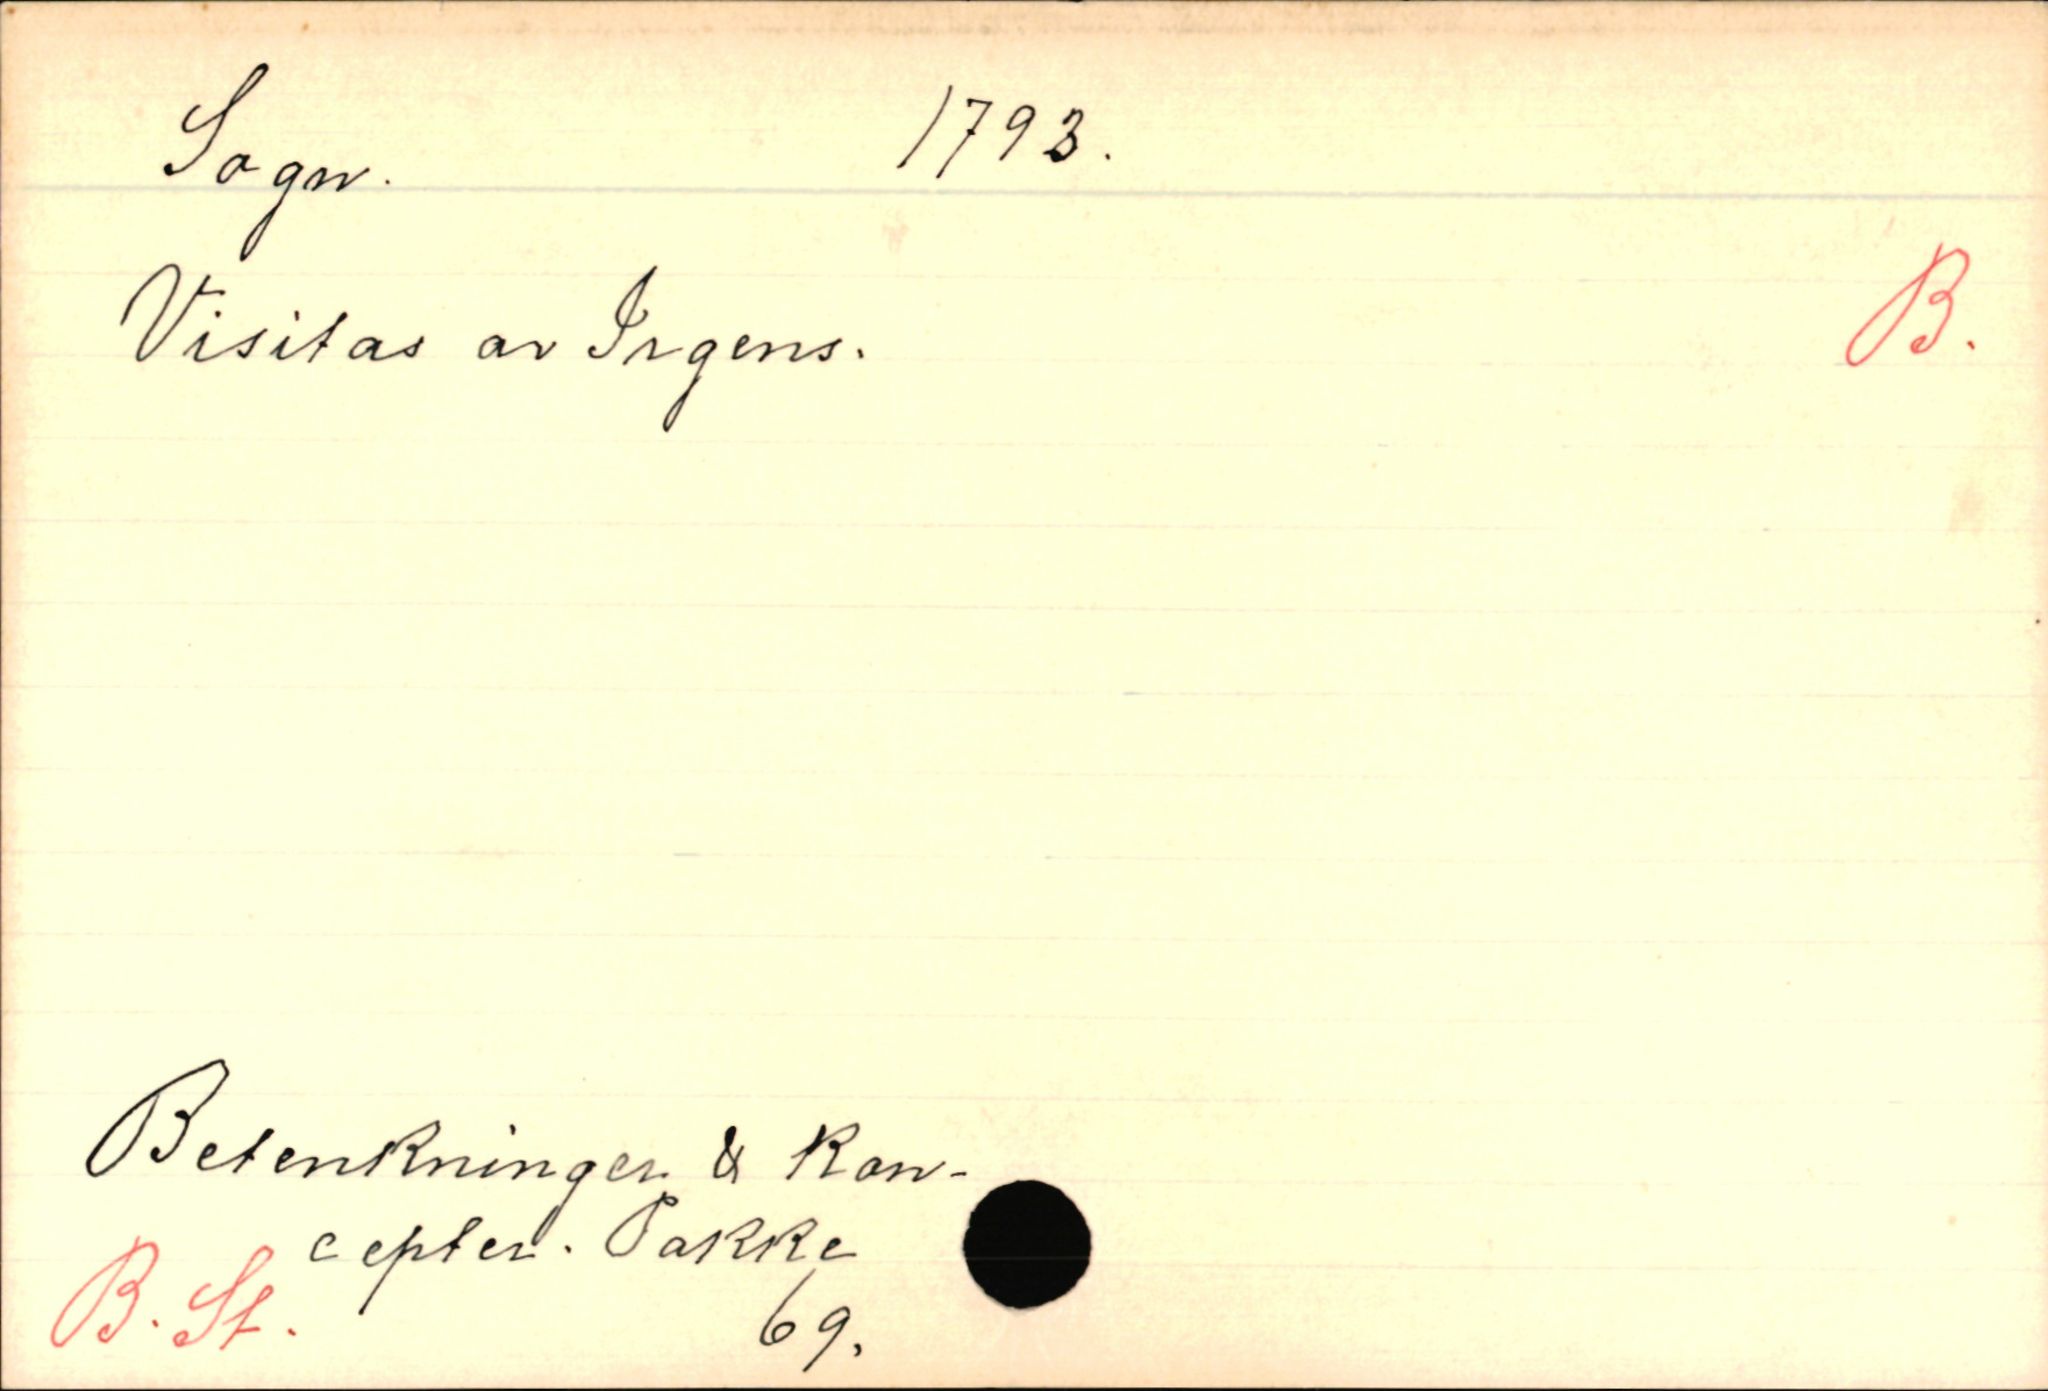 Sogn. 1793.
Visitas av Irgens. B.
Betenkninger & kon-
cepter. Pakke
69.
B. St.